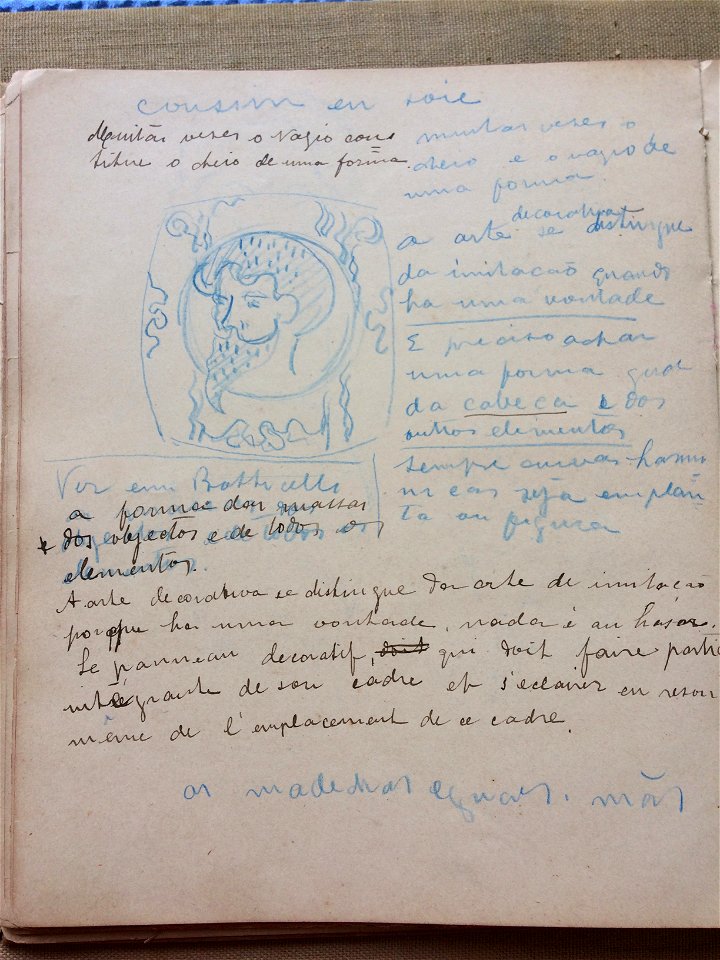 coussin en soie
Muitas vezes o Vazio cons
titue o cheio de uma forma.
muitas vezes o
cheio e o vazio de
uma forma.
decorativa
a arte se distingue
da imitacão quando
ha uma vontade
E preciso achar
uma forma qual
da cabeca e dos
outros elementos
sempre curvas
seja em plan
ta ou figura
Ver em Botticelli
a forma das massas
dos objectos e de todos os
elementos.
A arte decorativa se distingue da arte de imitacão
porque ha uma vontade, nada é au hasar.
Le panneau decoratif, doit qui doit faire partie
intégrante de son cadre et s'eclairer en
même de l'emplacement de ce cadre.
as madechas eguaes. mãos